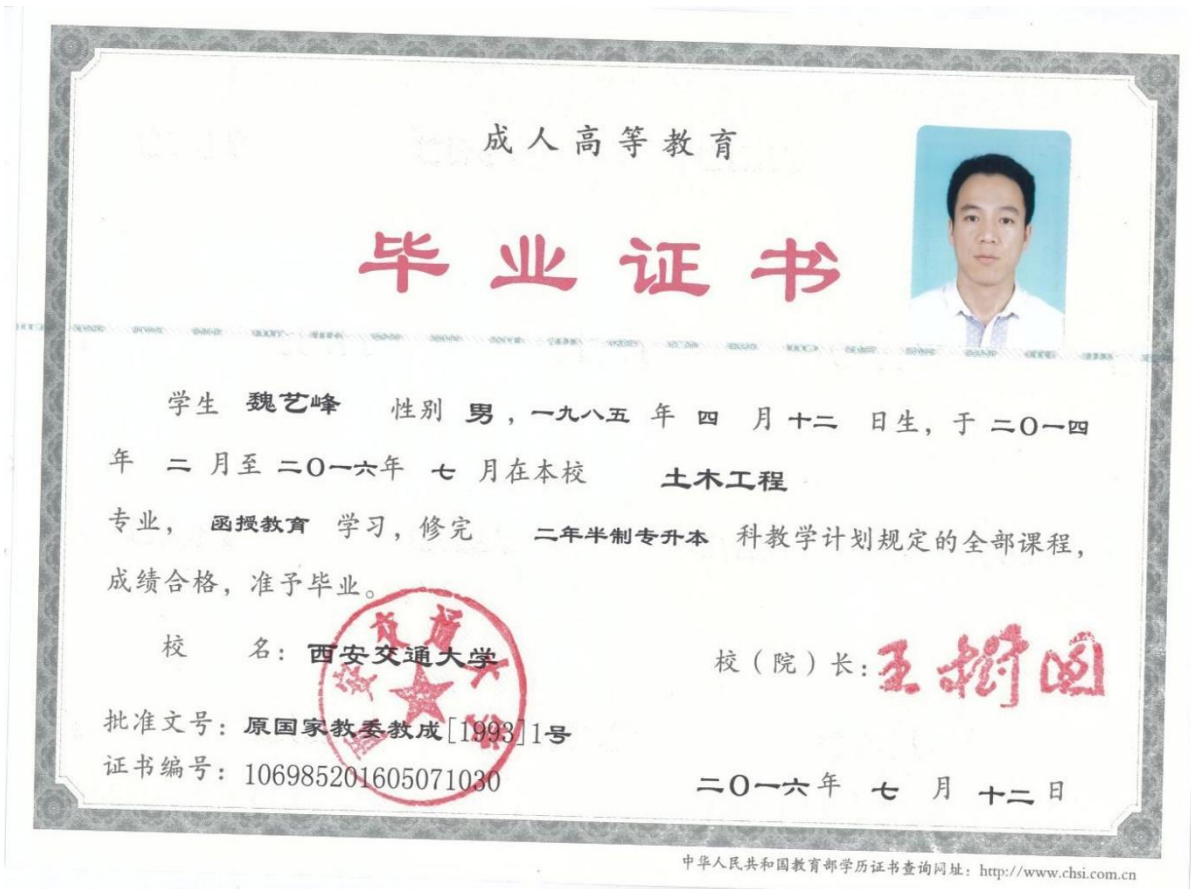 成人高等教育
毕业证书
学生 魏艺峰 性别 男，一九八五 年 四 月 十二 日生，于 二〇一四
年 二 月至 二〇一六年 七 月在本校 土木工程
专业， 函授教育 学习，修完 二年半制专升本 科教学计划规定的全部课程，
成绩合格，准予毕业。
校 名：西安交通大学
西安交通大学
校（院）长：王树国
批准文号：原国家教委教成[1993]1号
证书编号：106985201605071030
二〇一六年 七 月 十二 日
中华人民共和国教育部学历证书查询网址：http://www.chsi.com.cn